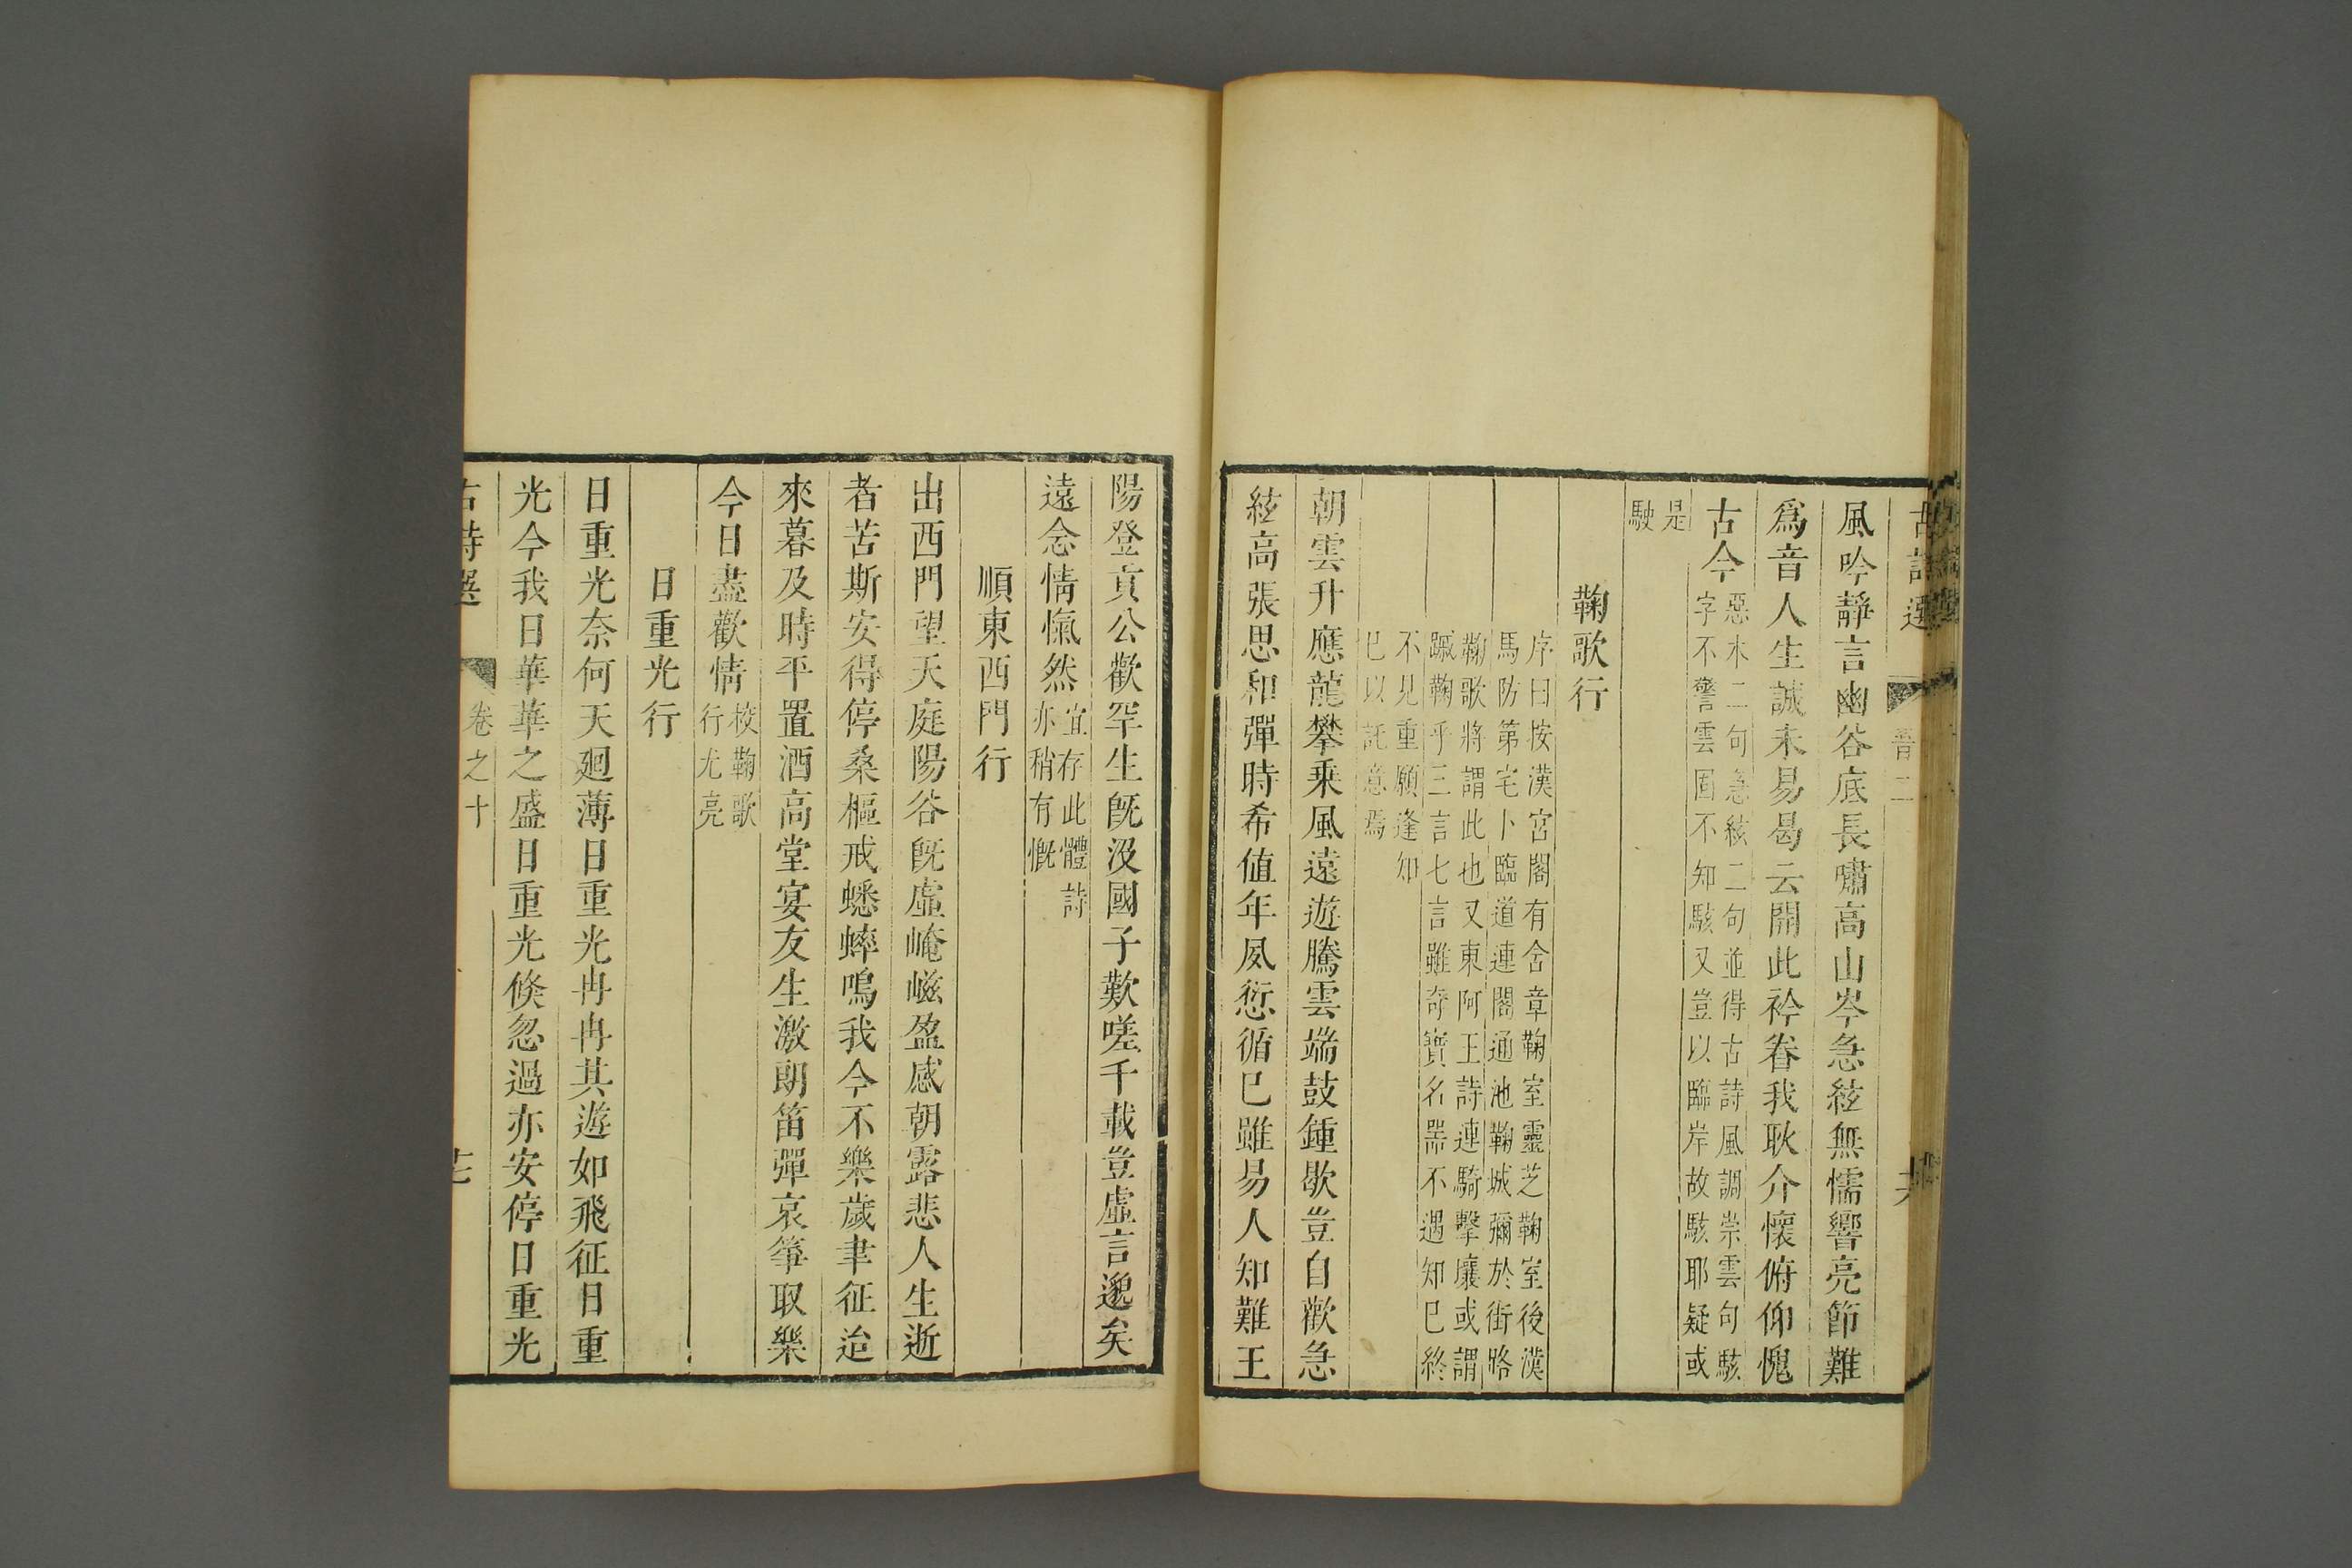 古詩選 晉二
風吟靜言幽谷底長嘯高山岑急絃無懦響亮節難
爲音人生誠未易曷云開此衿眷我耿介懷俯仰愧
古今
惡木二句急絃二句並得古詩風調崇雲句駭
字不警雲固不知駭又豈以臨岸故駭耶疑或
是
駛
鞠歌行
序曰按漢宮閣有含章鞠室靈芝鞠室後漢
馬防第宅卜臨道連閣通池鞠城彌於街路
鞠歌將謂此也又東阿王詩連騎擊廮或謂
蹴鞠乎三言七言雖奇寶名器不遇知巳終
不見重願逢知
巳以託意焉
朝雲升應龍攀乘風遠遊騰雲端鼓鍾歇豈自歡急
絃高張思和彈時希值年夙愆循巳雖易人知難王
陽登貢公歡罕生旣沒國子歎嗟千載豈虛言邈矣
遠念情愾然
宜存此體詩
亦稍有慨
順東西門行
出西門望天庭陽谷旣虛崦嵫盈感朝露悲人生逝
者苦斯安得停桑樞戒蟋蟀鳴我今不樂歲聿征迨
來暮及時平置酒高堂宴友生激朗笛彈哀箏取樂
今日盡歡情
校鞠歌
行尤亮
日重光行
日重光奈何天廻薄日重光冉冉其遊如飛征日重
光今我日華華之盛日重光倏忽過亦安停日重光
古詩選 卷之十